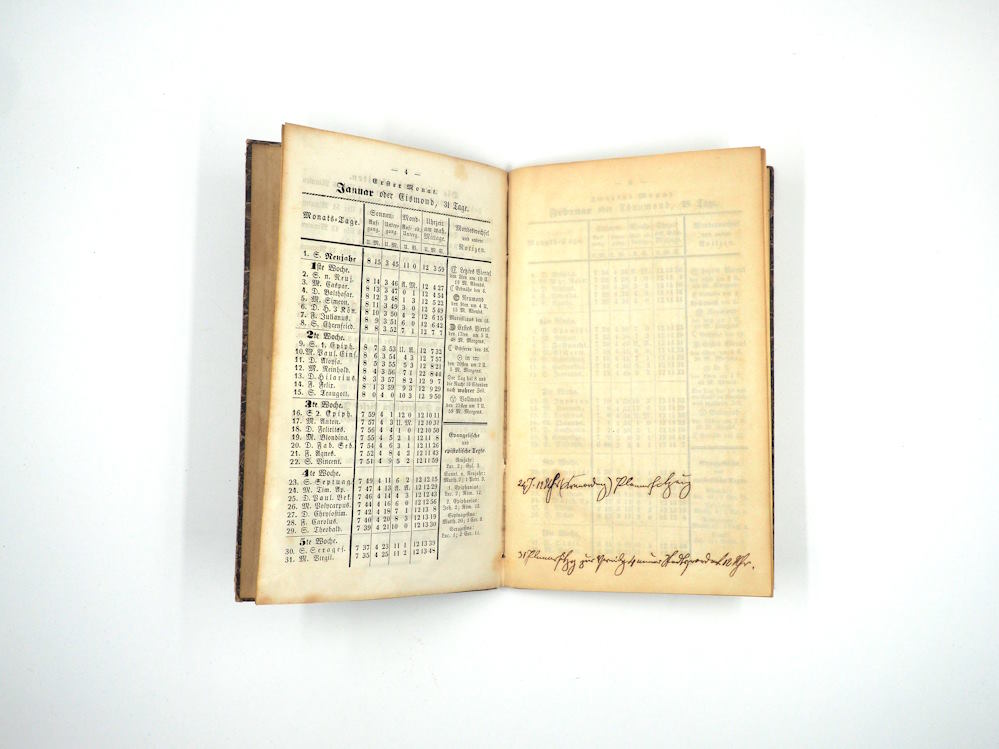 — 4 —
Erster Monat.
Januar oder Eismond, 31 Tage.
Monats-Tage.
Sonnen-
Aufgang.
Untergang.
U. M.
U. M.
Mond-
Auf- od. Unterg.
U. M.
Uhrzeit am wah. Mittage.
U. M. S.
1. S. Neujahr 8 15 3 45 11 0 12 3 59
1ste Woche.
2. S. n. Neuj. 8 14 3 46 A. M. 12 4 27
3. M. Caspar. 8 13 3 47 0 1 12 4 54
4. D. Balthasar. 8 12 3 48 1 3 12 5 22
5. M. Simeon. 8 11 3 49 3 0 12 5 49
6. D. H. 3 Kön. 8 10 3 50 4 2 12 6 15
7. F. Julianus. 8 9 3 51 6 0 12 6 42
8. S. Ehrenfried. 8 8 3 52 7 1 12 7 7
2te Woche.
9. S. 1. Epiph. 8 7 3 53 U. A. 12 7 32
10. M. Paul. Eins. 8 6 3 54 4 3 12 7 57
11. D. Aloysa. 8 5 3 55 5 3 12 8 21
12. M. Reinhold. 8 4 3 56 7 1 12 8 44
13. D. Hilarius. 8 3 3 57 8 2 12 9 7
14. F. Felix. 8 1 3 59 9 3 12 9 29
15. S. Traugott. 8 0 4 0 10 3 12 9 50
3te Woche.
16. S. 2. Epiph. 7 59 4 1 12 0 12 10 11
17. M. Anton. 7 57 4 3 U. M. 12 10 31
18. D. Felicitas. 7 56 4 4 1 0 12 10 50
19. M. Blondina. 7 55 4 5 2 1 12 11 8
20. D. Fab. Seb. 7 54 4 6 3 1 12 11 26
21. F. Agnes. 7 52 4 8 4 2 12 11 43
22. S. Vincent. 7 51 4 9 5 2 12 11 59
4te Woche.
23. S. Septuag. 7 49 4 11 6 2 12 12 15
24. M. Tim. Ap. 7 47 4 13 A. A. 12 12 29
25. D. Paul. Bek. 7 46 4 14 4 3 12 12 43
26. M. Polycarpus. 7 44 4 16 6 0 12 12 56
27. D. Chrysostim. 7 42 4 18 7 1 12 13 8
28. F. Carolus. 7 40 4 20 8 3 12 13 19
29. S. Theobald. 7 39 4 21 10 0 12 13 30
5te Woche.
30. S. Seragef. 7 37 4 23 11 1 12 13 39
31. M. Virgil. 7 35 4 25 11 2 12 13 48
Mondswechsel
und andere
Notizen.
Letztes Viertel
den 2ten um 10 U.
Abends.
Erdnähe den 4.
Neumond
den 9ten um 4 U.
Abends.
Erstes Viertel
den 17ten um 5 U.
Morgens.
Erdferne den 16.
in
den 20sten um 2 U.
5 M. Morgens.
Der Tag hat 8 und
die Nacht 16 Stunden
nach wahrer Zeit.
Vollmond
den 25sten um 7 U.
59 M. Morgens.
Evangelische
und
epistolische Texte.
Neujahr:
Luc. 2; Gal. 3.
Sonnt. n. Neujahr:
Matth. 2; 1 Petri 3.
1. Epiphanias:
Luc. 2; Röm. 12.
2. Epiphanias:
Joh. 2; Röm. 12.
Septuagesimä:
Matth. 20; 1 Cor. 9.
Seragesimä:
Luc. 8; 2 Cor. 11.
Plenarsitzung